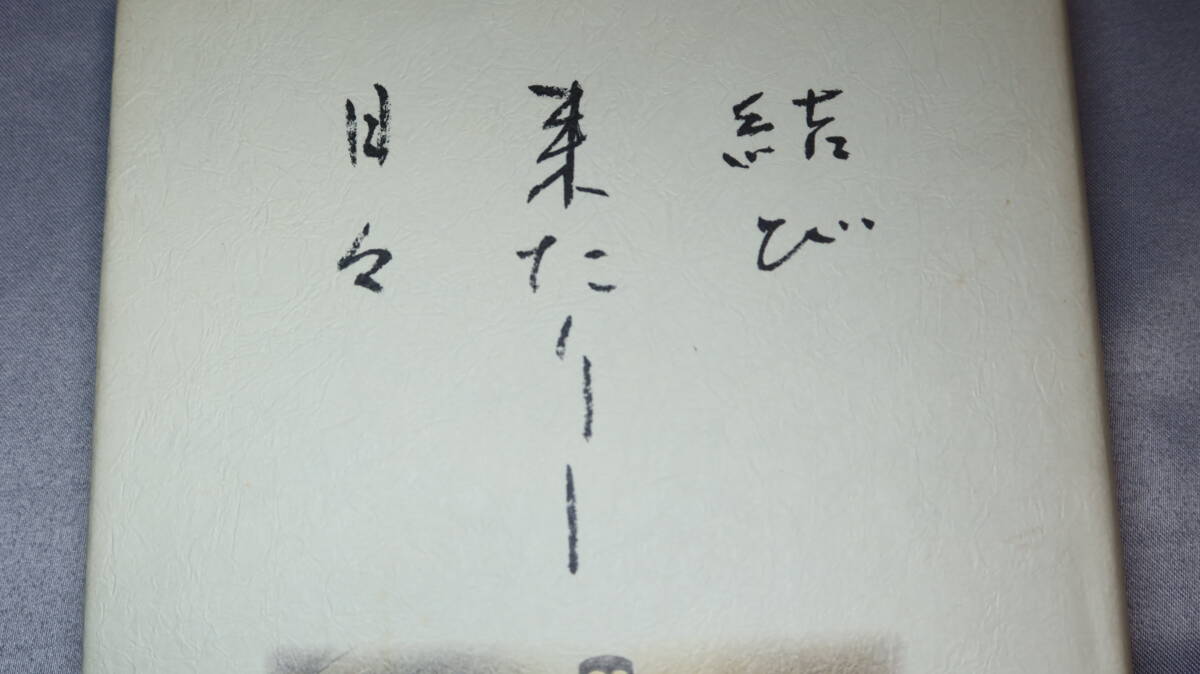 結び
来たりし
日々